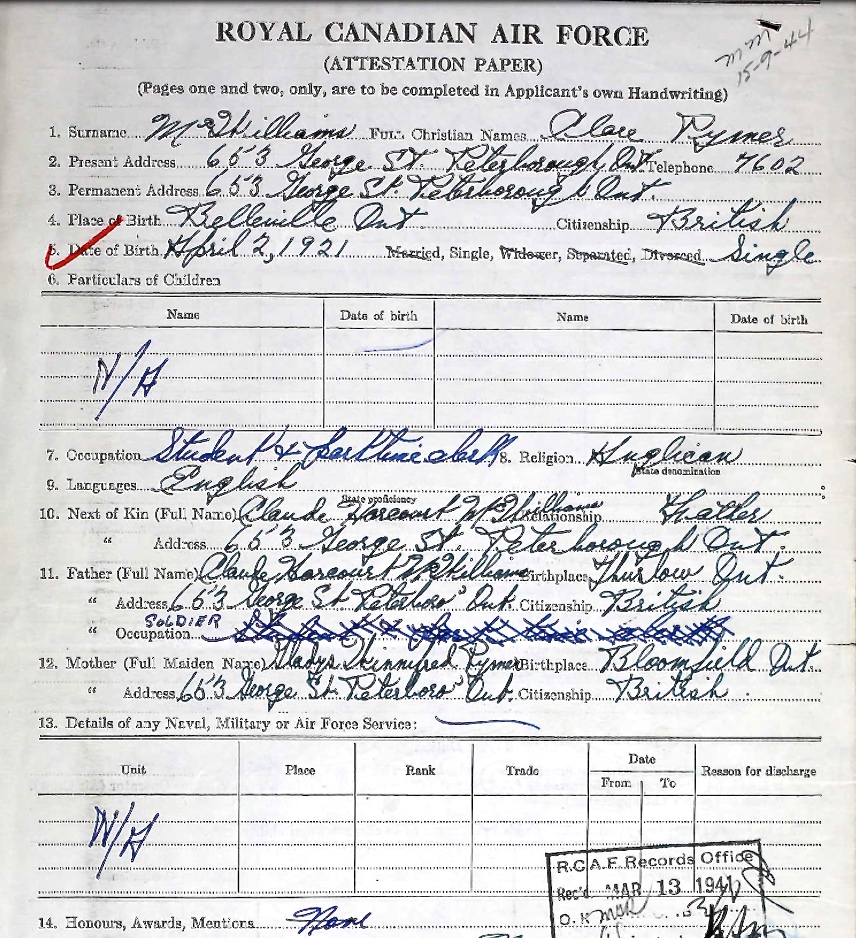 ROYAL CANADIAN AIR FORCE
(ATTESTATION PAPER)
15-9-44
(Pages one and two, only, are to be completed in Applicant's own Handwriting)
1. Surname McWilliams Full Christian Names Clare Rymer
2. Present Address 653 George St. Peterborough, Ont. Telephone 7602
3. Permanent Address 653 George St. Peterborough Ont.
4. Place of Birth Belleville Ont Citizenship British
5. Date of Birth April 2, 1921 Married, Single, Widower, Separated, Divorced Single
6. Particulars of Children
Name Date of birth Name Date of birth
N/A
7. Occupation Student & part time clerk 8. Religion Anglican
State denomination
9. Languages English
State proficiency
10. Next of Kin (Full Name) Claude Harcourt McWilliams Relationship Father
" Address 653 George St. Peterborough Ont.
11. Father (Full Name) Claude Harcourt McWilliams Birthplace Thurlow Ont.
" Address 653 George St. Peterboro' Ont. Citizenship British
" Occupation SOLDIER Student & part time clerk
12. Mother (Full Maiden Name) Gladys Winnifred Rymer Birthplace Bloomfield Ont.
" Address 653 George St. Peterboro' Ont. Citizenship British
13. Details of any Naval, Military or Air Force Service:
Unit Place Rank Trade Date Reason for discharge
From To
N/A
R.C.A.F. Records Office
Rec'd MAR 13 1941
O.K.
14. Honours, Awards, Mentions None